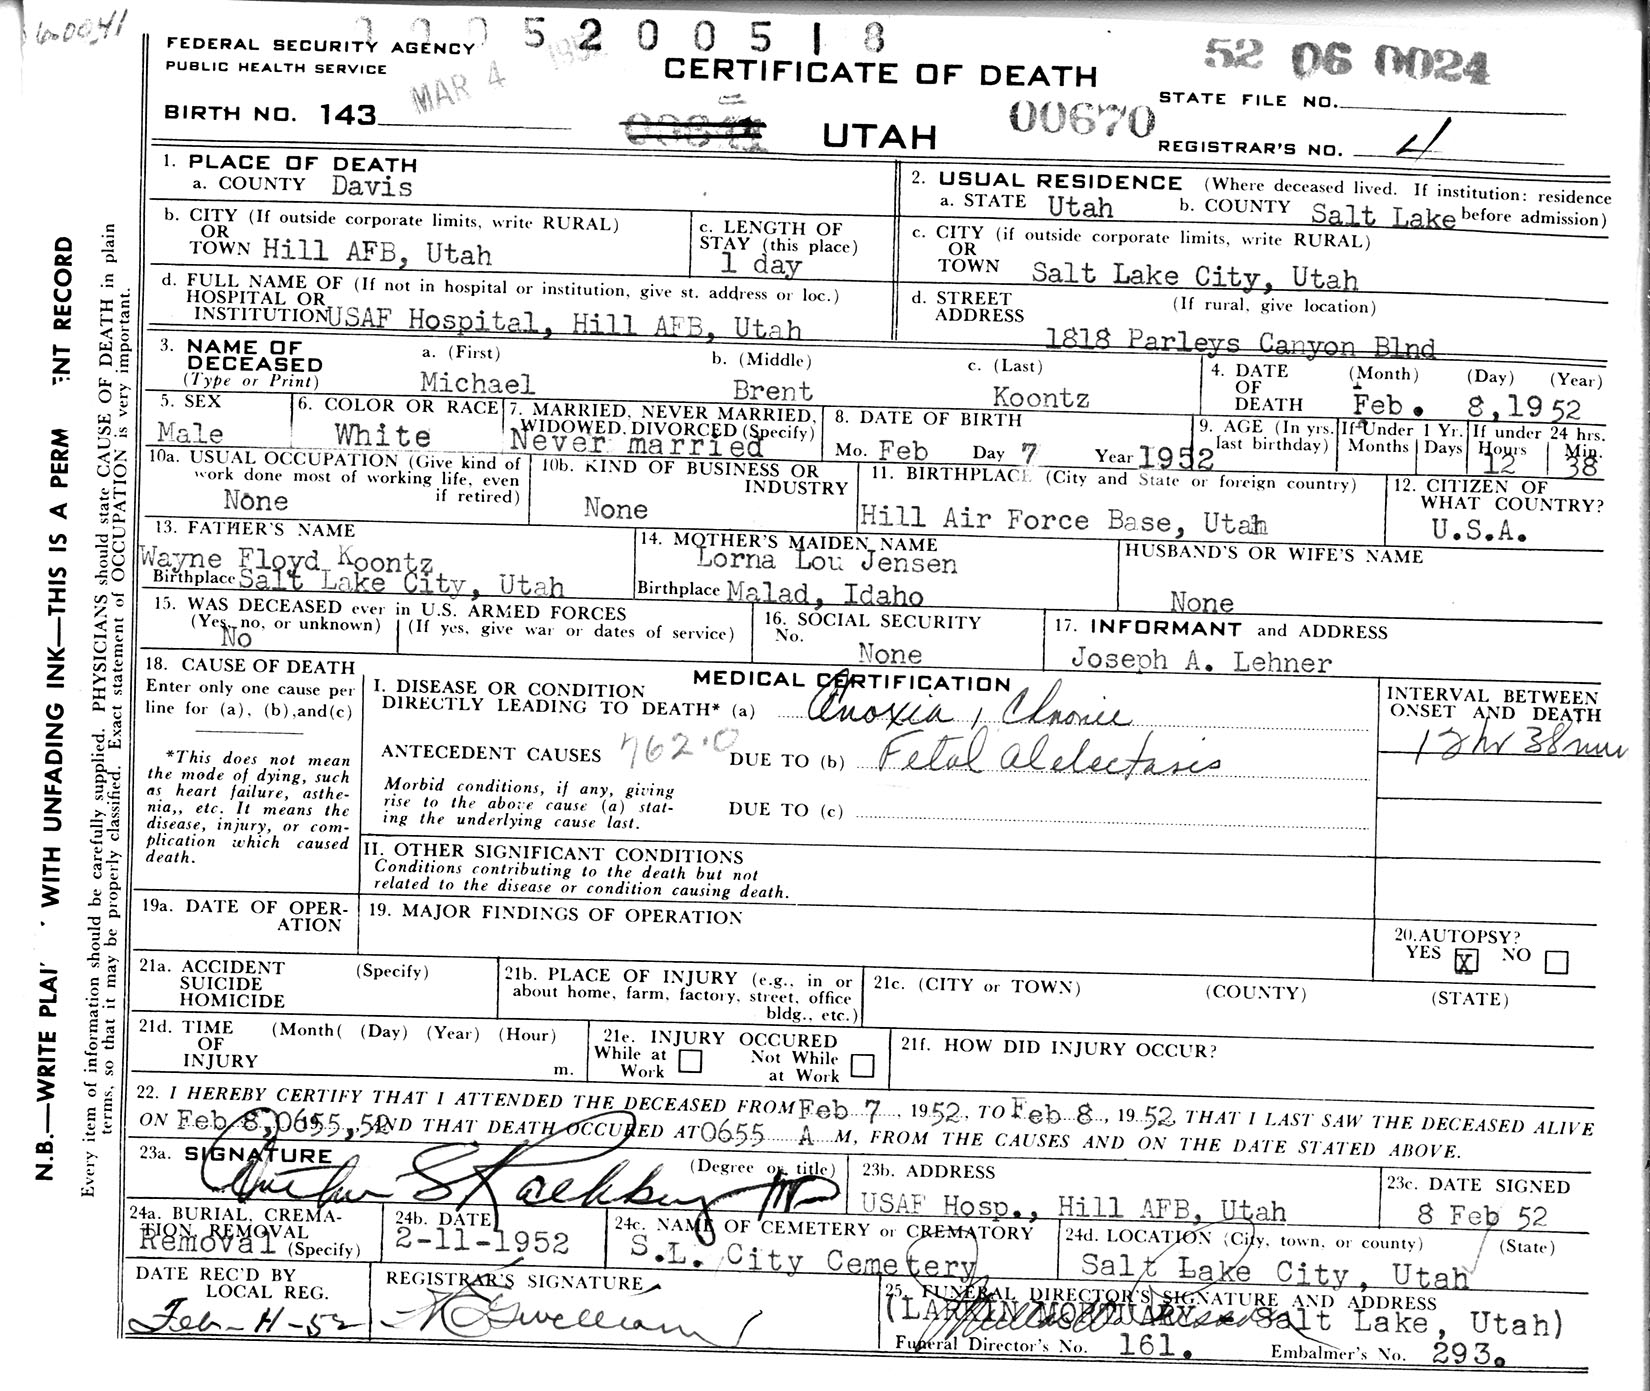 6-0041
100520 0518
FEDERAL SECURITY AGENCY
PUBLIC HEALTH SERVICE
MAR 4 1952
CERTIFICATE OF DEATH
52 06 0024
STATE FILE NO.
BIRTH NO. 143
UTAH
00670
REGISTRAR'S NO. 4
1. PLACE OF DEATH
a. COUNTY Davis
2. USUAL RESIDENCE (Where deceased lived. If institution: residence before admission)
a. STATE Utah b. COUNTY Salt Lake
b. CITY (If outside corporate limits, write RURAL)
OR
TOWN Hill AFB, Utah
c. LENGTH OF
STAY (this place)
1 day
c. CITY (if outside corporate limits, write RURAL)
OR
TOWN Salt Lake City, Utah
d. FULL NAME OF (If not in hospital or institution, give st. address or loc.)
HOSPITAL OR
INSTITUTION USAF Hospital, Hill AFB, Utah
d. STREET (If rural, give location)
ADDRESS
1818 Parleys Canyon Blnd
3. NAME OF
DECEASED
(Type or Print)
a. (First) b. (Middle) c. (Last)
Michael Brent Koontz
4. DATE (Month) (Day) (Year)
OF
DEATH Feb. 8, 1952
5. SEX
Male
6. COLOR OR RACE
White
7. MARRIED, NEVER MARRIED,
WIDOWED, DIVORCED (Specify)
Never married
8. DATE OF BIRTH
Mo. Feb Day 7 Year 1952
9. AGE (In yrs. last birthday)
If Under 1 Yr.
Months Days
If under 24 hrs.
Hours Min.
12 38
10a. USUAL OCCUPATION (Give kind of
work done most of working life, even
if retired)
None
10b. KIND OF BUSINESS OR
INDUSTRY
None
11. BIRTHPLACE (City and State or foreign country)
Hill Air Force Base, Utah
12. CITIZEN OF
WHAT COUNTRY?
U.S.A.
13. FATHER'S NAME
Wayne Floyd Koontz
Birthplace Salt Lake City, Utah
14. MOTHER'S MAIDEN NAME
Lorna Lou Jensen
Birthplace Malad, Idaho
HUSBAND'S OR WIFE'S NAME
None
15. WAS DECEASED ever in U.S. ARMED FORCES
(Yes, no, or unknown) (If yes, give war or dates of service)
No
16. SOCIAL SECURITY
No.
None
17. INFORMANT and ADDRESS
Joseph A. Lehner
18. CAUSE OF DEATH
Enter only one cause per
line for (a), (b),and(c)
*This does not mean
the mode of dying, such
as heart failure, asthe-
nia,, etc. It means the
disease, injury, or com-
plication which caused
death.
MEDICAL CERTIFICATION
I. DISEASE OR CONDITION
DIRECTLY LEADING TO DEATH* (a) Anoxia, Chronic
ANTECEDENT CAUSES 762.0 DUE TO (b) Fetal atelectasis
Morbid conditions, if any, giving
rise to the above cause (a) stat-
ing the underlying cause last.
DUE TO (c)
INTERVAL BETWEEN
ONSET AND DEATH
12 hr 38 min
II. OTHER SIGNIFICANT CONDITIONS
Conditions contributing to the death but not
related to the disease or condition causing death.
19a. DATE OF OPER-
ATION
19. MAJOR FINDINGS OF OPERATION
20. AUTOPSY?
YES X NO
21a. ACCIDENT (Specify)
SUICIDE
HOMICIDE
21b. PLACE OF INJURY (e.g., in or
about home, farm, factory, street, office
bldg., etc.)
21c. (CITY or TOWN) (COUNTY) (STATE)
21d. TIME (Month( (Day) (Year) (Hour)
OF
INJURY m.
21e. INJURY OCCURED
While at Work Not While at Work
21f. HOW DID INJURY OCCUR?
22. I HEREBY CERTIFY THAT I ATTENDED THE DECEASED FROM Feb 7, 1952, TO Feb 8, 1952, THAT I LAST SAW THE DECEASED ALIVE
ON Feb 8, 0655, 52 AND THAT DEATH OCCURED AT 0655 A M, FROM THE CAUSES AND ON THE DATE STATED ABOVE.
23a. SIGNATURE (Degree or title)
MD
23b. ADDRESS
USAF Hosp., Hill AFB, Utah
23c. DATE SIGNED
8 Feb 52
24a. BURIAL, CREMA-
TION REMOVAL
Removal (Specify)
24b. DATE
2-11-1952
24c. NAME OF CEMETERY or CREMATORY
S.L. City Cemetery
24d. LOCATION (City, town, or county) (State)
Salt Lake City, Utah
DATE REC'D BY
LOCAL REG.
Feb-11-52
REGISTRAR'S SIGNATURE
25. FUNERAL DIRECTOR'S SIGNATURE AND ADDRESS
(LARKIN MORTUARY - Salt Lake, Utah)
Funeral Director's No. 161. Embalmer's No. 293.
N.B.—WRITE PLAI WITH UNFADING INK—THIS IS A PERM ENT RECORD
Every item of information should be carefully supplied. PHYSICIANS should state CAUSE OF DEATH in plain
terms, so that it may be properly classified. Exact statement of OCCUPATION is very important.